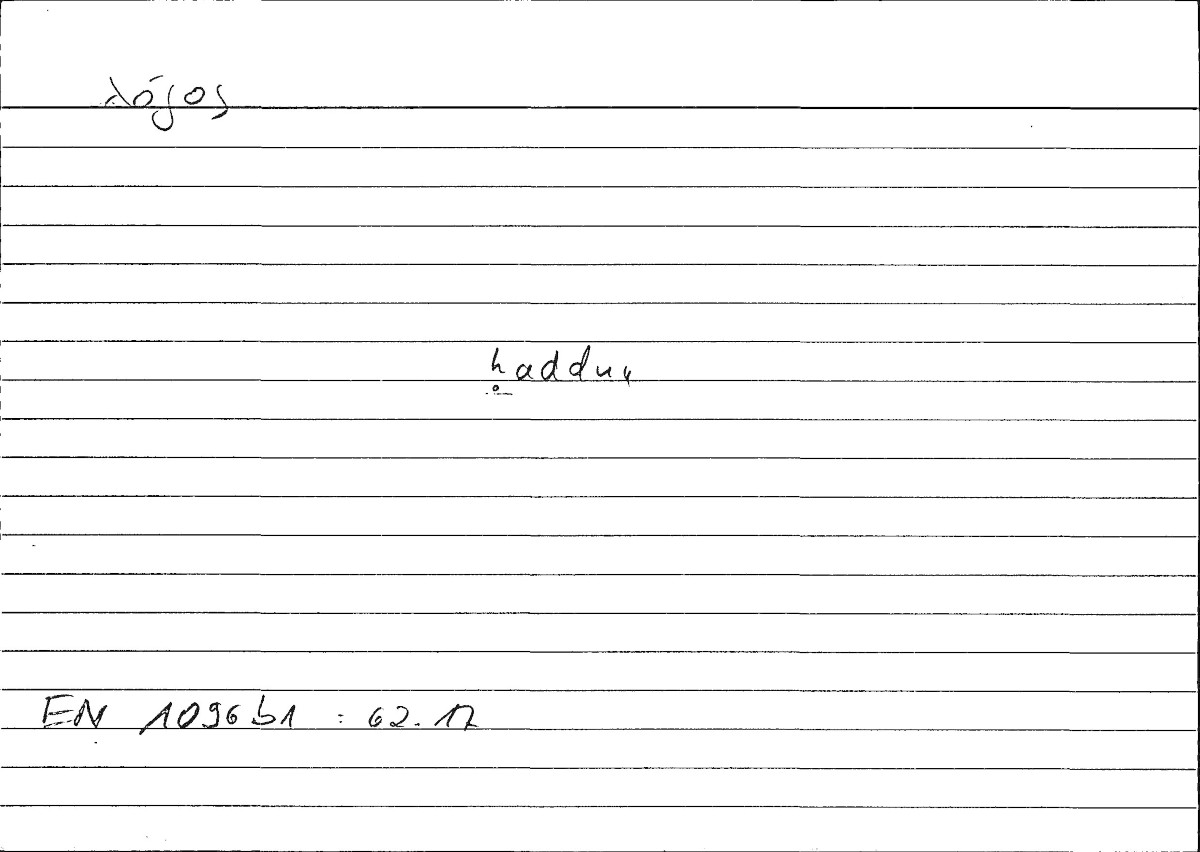 λόγος
ḥaddun
EN 1096b1 : 62.17